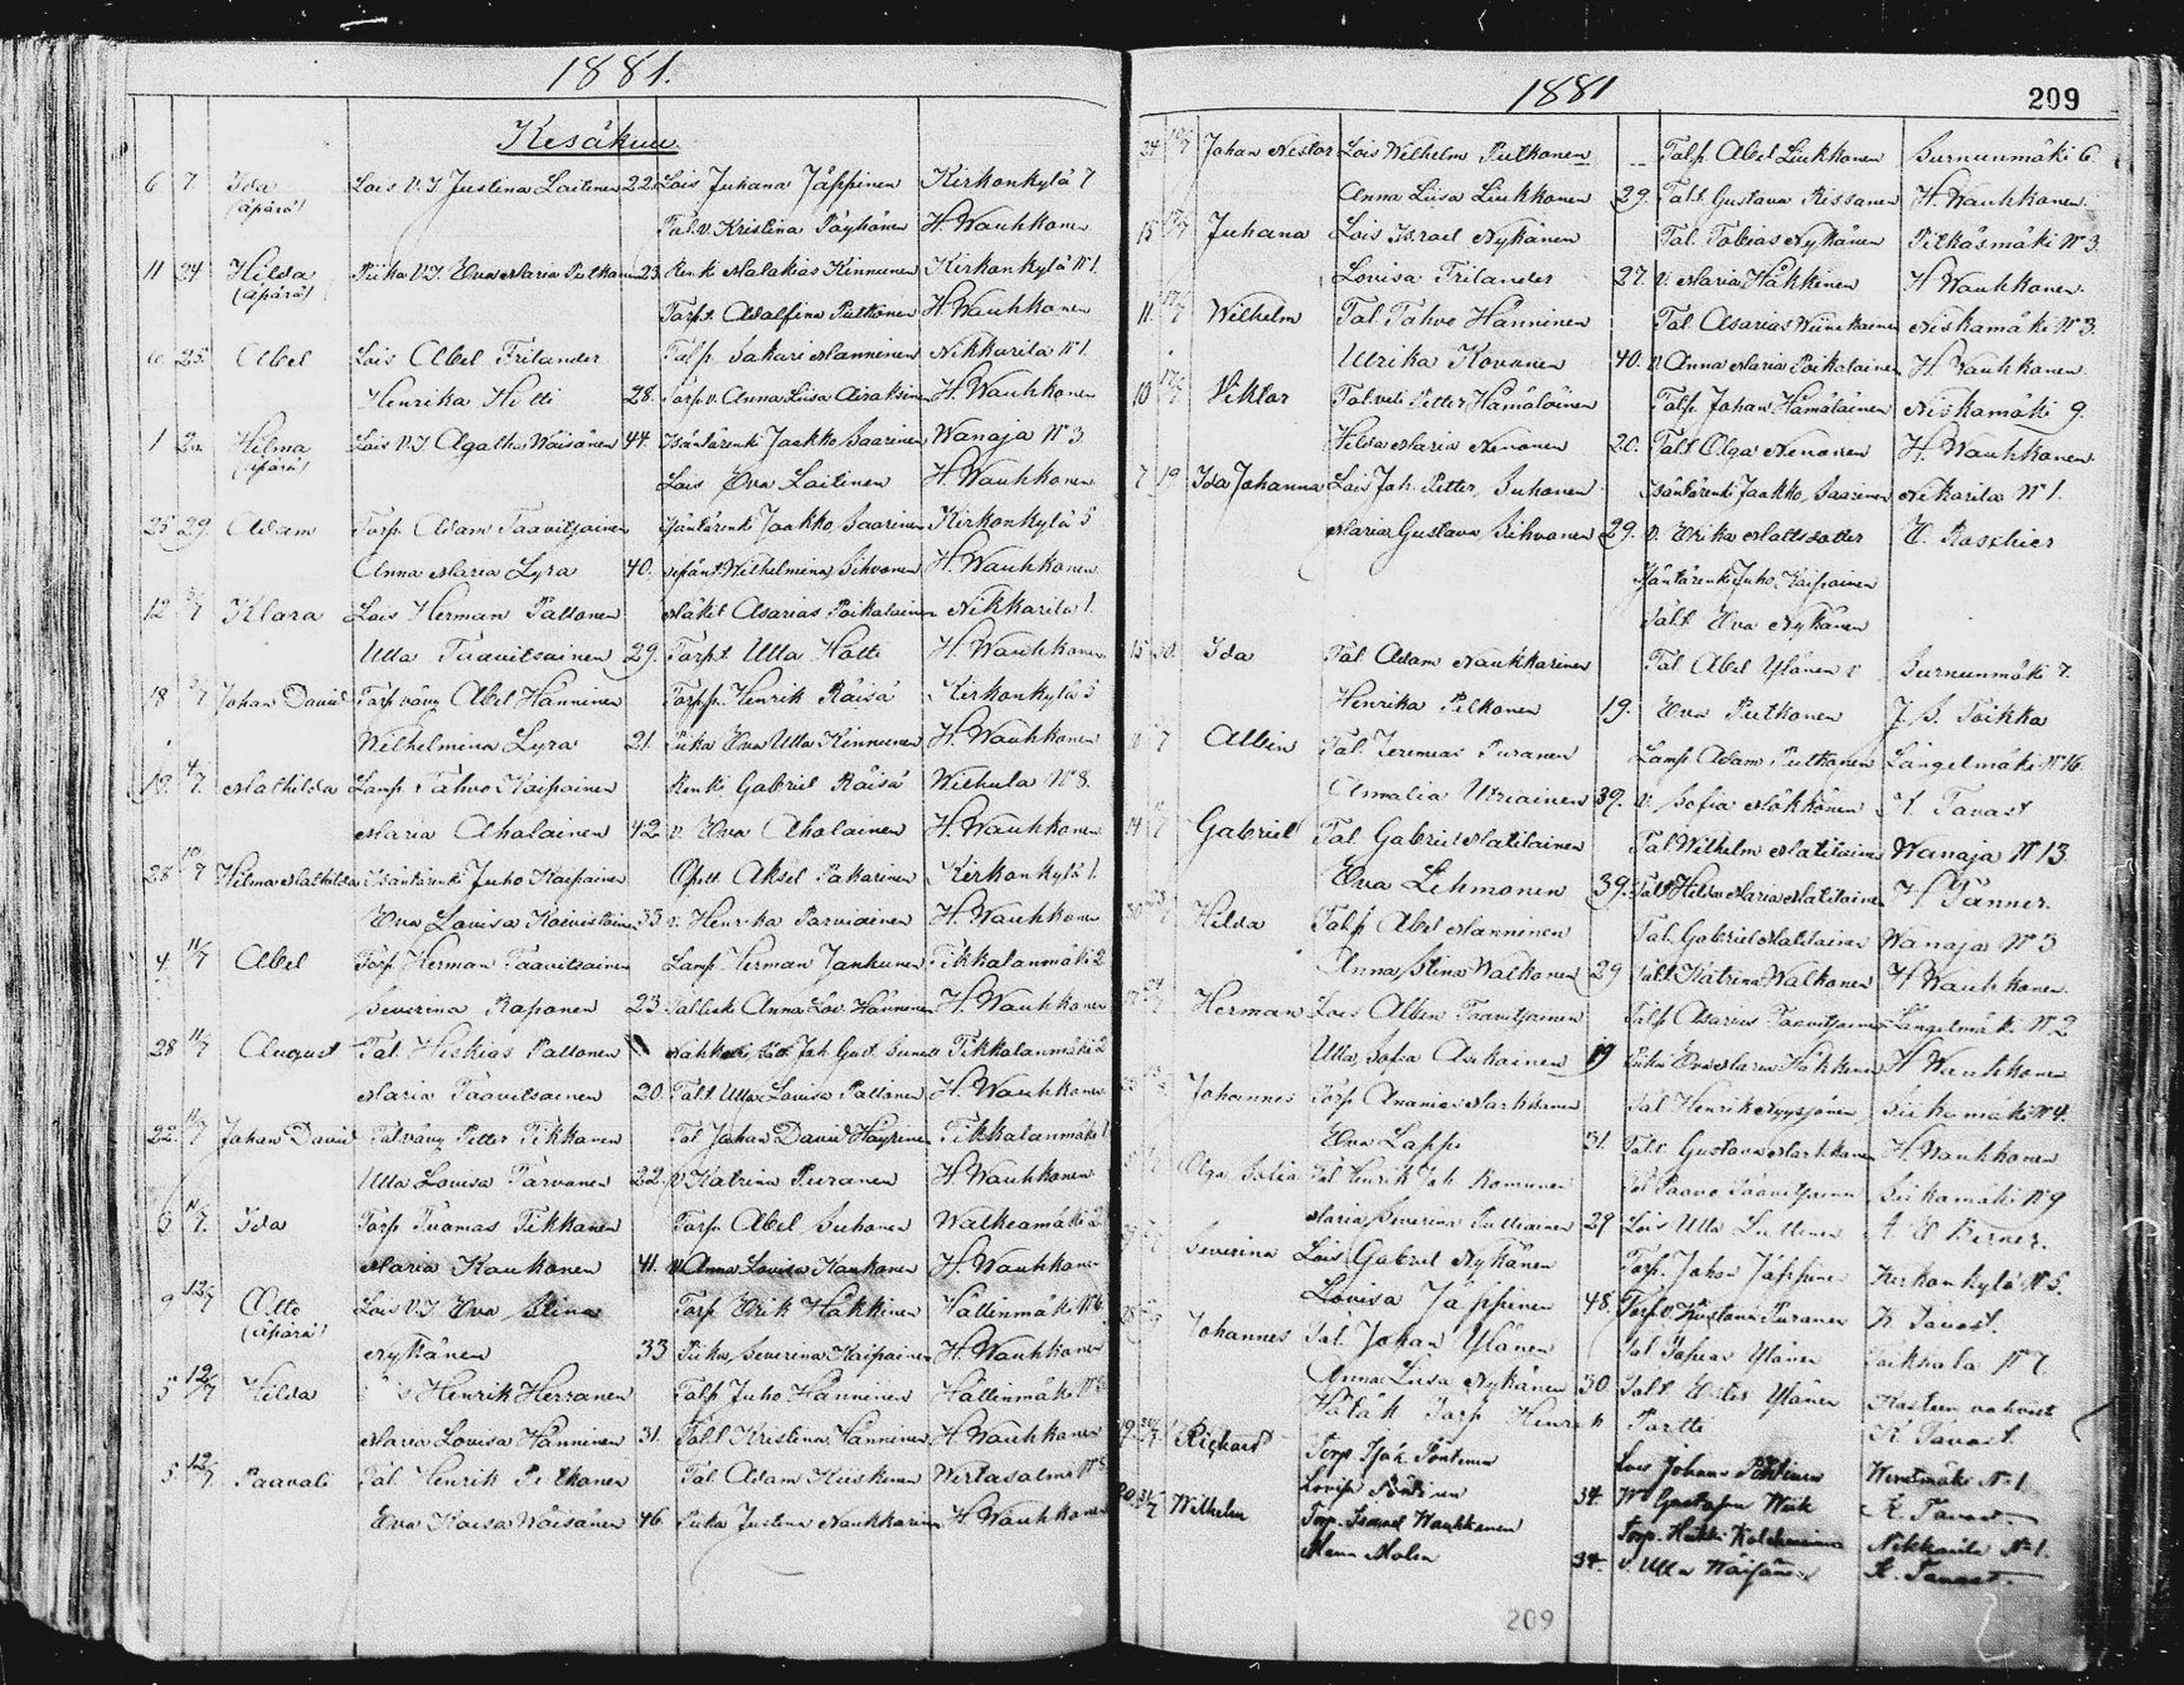 1881.
Kesäkuu.
6 7. Ida Lois V.I. Justina Laitinen 22. Lois Juhana Jäppinen Kirkonkylä 7
(äpärä) Tal.v. Kristina Päyhönen H. Wauhkonen
11 24 Hilda Piika V.I. Eva Maria Putkonen 23. Renki Malakias Kinnunen Kirkonkylä N:1.
(äpärä) Torp.t. Adolfina Putkonen H. Wauhkonen
25. Abel Lois Abel Frilander Talp. Sakari Manninen Nikkarila N:1.
Henrika Hotti 28. Torp.v. Anna Liisa Airaksinen H. Wauhkonen
1 Hilma Lois V.I. Agatha Wäisänen 44. Isäntärenki Jaakko Saarinen Wanaja N:3
(äpärä) Lois Eva Laitinen H. Wauhkonen
25 29. Adam Torp. Adam Taavitsainen Isäntärenki Jaakko Saarinen Kirkonkylä 5
Anna Maria Lyra 40. Wilhelmina Sihvonen H. Wauhkonen
12 3/7 Klara Lois Herman Paltonen Mäkit. Asarias Poikalainen Nikkarila 1.
Ulla Taavitsainen 29. Torp.t. Ulla Hotti H. Wauhkonen
18 3/7 Johan David Torp.vävy Abel Hänninen Torp.p. Henrik Räisä Kirkonkylä 5
Wilhelmina Lyra 21. Piika Eva Ulla Kinnunen H. Wauhkonen
19. 4/7. Mathilda Lamp. Tahvo Kaipainen Renki Gabriel Räisä Wiehula N:8.
Maria Aholainen 42 v. Eva Aholainen H. Wauhkonen
28 10/7 Hilma Mathilda Isäntärenki Juho Kaipainen Opett. Aksel Pakarinen Kirkonkylä 1.
Eva Lovisa Koivistoinen 33 v. Henrika Parviainen H. Wauhkonen
4. 11/7 Abel Torp. Herman Taavitsainen Lamp. Herman Jankunen Tikkalanmäki 2
Severina Raponen 23 Anna Lov. Hänninen H. Wauhkonen
28 11/7 August Tal. Heskias Paltonen Joh. Gust. Tikkalanmäki 2
Maria Taavitsainen 20. Tal.t. Ulla Lovisa Paltonen H. Wauhkonen
22. 11/7 Johan David Tal.vävy Petter Tikkanen Tal. Johan David Häyrinen Tikkalanmäki 1
Ulla Lovisa Parvanen 22. v. Katrina Puranen H. Wauhkonen
6 11/7. Ida Torp. Tuomas Tikkanen Torp. Abel Suhonen Walkeamäki 2
Maria Kaukonen 41. v. Anna Lovisa Kaukonen H. Wauhkonen
9 12/7 Otto Lois V.I. Eva Stina Torp. Erik Häkkinen Hällinmäki N:6
(äpärä)
Nykänen 33 Piika Severina Kaipainen H. Wauhkonen
5 12/7 Hilda Henrik Herranen Talp. Juho Hänninen Hällinmäki
Maria Lovisa Hänninen 31. Tal.t. Kristina Hänninen H. Wauhkonen
5 12/7. Paavali Tal. Henrik Pitkonen Tal. Adam Hiiskinen Wirtasalmi
Eva Kaisa Wäisänen 46. Piika Justina Naukkarinen H. Wauhkonen
1881
209
24 Johan Nestor Lois Wilhelm Putkonen Talp. Abel Liukkonen Surnunmäki 6.
Anna Liisa Liukkonen 29. Tal.t. Gustava Rissanen H. Wauhkonen.
15 17/7 Juhana Lois Israel Nykänen Tal. Tobias Nykänen Pitkäsmäki N:3.
Lovisa Frilander 27. v. Maria Häkkinen H Wauhkonen.
11. 17/7 Wilhelm Tal. Tahvo Hänninen Tal. Asarias Wiinikainen Niskamäki N:3.
Ulrika Kovanen 40. v. Anna Maria Poikalainen H. Wauhkonen.
10 17/7 Viktor Tal.veli Petter Hämäläinen Talp. Johan Hämäläinen Niskamäki 9.
Hilda Maria Nenonen 20. Tal.t. Olga Nenonen H. Wauhkonen.
7 19 Ida Johanna Lois Joh. Petter Suhonen Isäntärenki Jaakko Saarinen Nikarila N:1.
Maria Gustava Sihvonen 29. v. Erika Mattsdotter E. Roschier
Isäntärenki Juho Kaipainen
Tal.t. Eva Nykänen
15 30. Ida Tal. Adam Naukkarinen Tal. Abel Ylönen v. Surnunmäki 7.
Henrika Pelkonen 19. Eva Putkonen J. S. Toikka
Albin Tal. Jeremias Puranen Lamp. Adam Putkonen Längelmäki N:16.
Amalia Utriainen 39. v. Sofia Mökkönen K. Tavast
14 Gabriel Tal. Gabriel Matilainen Tal. Wilhelm Matilainen Wanaja N:13.
Eva Lehmonen 39. Tal.t. Helena Maria Matilainen H Tanner.
Hilda Talp. Abel Manninen Tal. Gabriel Matilainen Wanaja N:3
Anna Stina Walkonen 29 Tal.t. Katrina Walkonen H Wauhkonen.
Herman Lois Albin Taavitsainen Talp. Asarias Taavitsainen Längelmäki N:2
Ulla Sofia Auhainen 19 Piika Eva Maria Häkkinen H Wauhkonen
Johannes Torp. Ananias Markkanen Tal. Henrik Nyyssönen Siikamäki N:4.
Eva Lappi 31. Tal.t. Gustava Markkanen H. Wauhkonen
Olga Sofia Tal. Henrik Joh. Romunen Tal. Paavo Taavitsainen Siikamäki N:9
Maria Severina Pulliainen 29 Lois Ulla Luttinen A. E Berner.
Severina Lois Gabriel Nykänen Torp. Johan Jäppinen Kirkonkylä N:5.
Lovisa Jäppinen 48. Torp.v. Kustava Puranen K. Tavast.
Johannes Tal. Johan Ylönen Tal. Topias Ylönen Toikkala N:7
Anna Liisa Nykänen 30. Tal.t. Ester Ylönen Kasteen vahvist
Hätäk. Torp. Henrik Partti K Tavast.
19 30/7 Rickard Torp. Isak Pöntinen Lois Johan Pöntinen N:1
Lovisa Pöntinen 34. Gustafva Wiik K. Tavast.
20. 31/7 Wilhelm Torp. Ismael Wauhkonen Torp. Heikki Kolehmainen Nikkarila N:1.
34. v. Ulla Wäisänen K. Tavast.
209